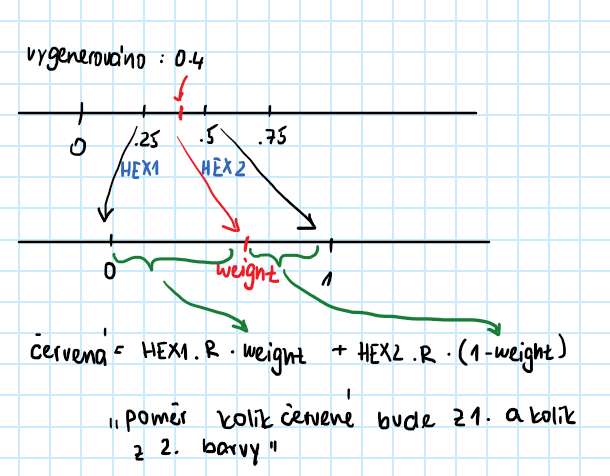 vygenerováno : 0.4
0 .25 .5 .75
HEX1 HEX2
0 weight 1
červená = HEX1.R · weight + HEX2.R · (1-weight)
„poměr kolik červené bude z 1. a kolik
z 2. barvy"